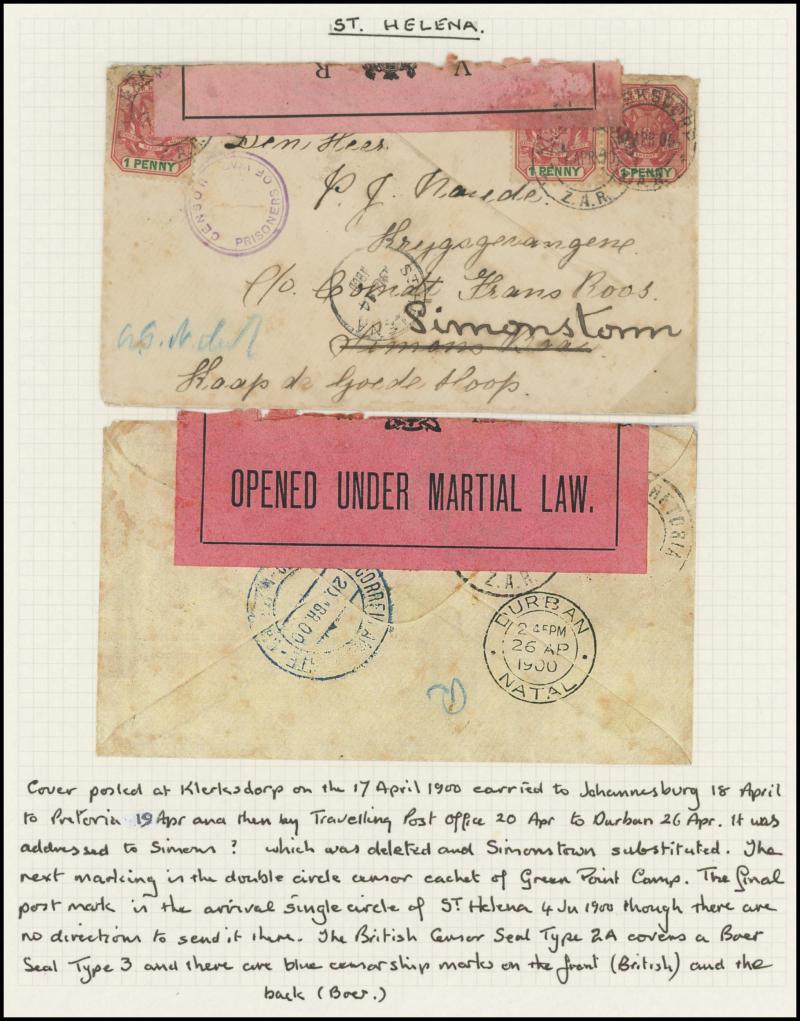 ST. HELENA.
V R
1 PENNY
1 PENNY
1 PENNY
Z.A.R.
CENSOR PRISONERS OF WAR
Den Heer
P. J. Naude
Krygsgevangene
c/o. Comdt Frans Roos.
Simonstown
Simons
Kaap de Goede Hoop.
OPENED UNDER MARTIAL LAW.
PRETORIA
Z.A.R.
20. ABR. 00
DURBAN
2 45PM
26 AP
1900
NATAL
Cover posted at Klerksdorp on the 17 April 1900 carried to Johannesburg 18 April
to Pretoria 19 Apr and then by Travelling Post Office 20 Apr to Durban 26 Apr. It was
addressed to Simons ? which was deleted and Simonstown substituted. The
next marking is the double circle censor cachet of Green Point Camp. The final
post mark is the arrival single circle of ST Helena 4 Ju 1900 though there are
no directions to send it there. The British Censor Seal Type 2A covers a Boer
Seal Type 3 and there are blue censorship marks on the front (British) and the
back (Boer.)